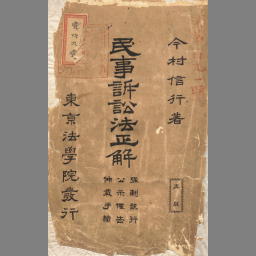 今村信行著
民事訴訟法正解
強制執行
公示催告
仲裁手続
東京法學院發行